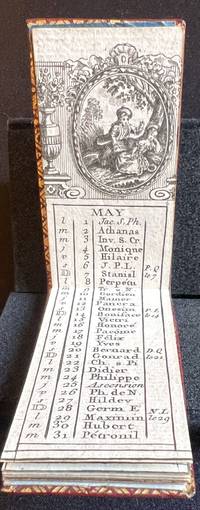 MAY
l 1 Jac. S. Ph.
m 2 Athanas
m 3 Inv. S. Cr.
j 4 Monique
v 5 Hilaire
s 6 J. P. L.
D 7 Stanisl P. Q.
l 8 Perpetu le 7
m 9
m 10 Gordien
j 11 Mamer
v 12 Pancra
s 13 Onesim P. L.
D 14 Boniface le 14
l 15 Victri
m 16 Honoré
m 17 Pacome
j 18 Félix
v 19 Yves
s 20 Bernard D. Q.
D 21 Gonrad le 21
l 22 Ch. s. Pi
m 23 Didier
m 24 Philippe
j 25 Ascension
v 26 Ph. de N.
s 27 Hildev
D 28 Germ E. N. L.
l 29 Maximin le 29
m 30 Hubert
m 31 Pétronil